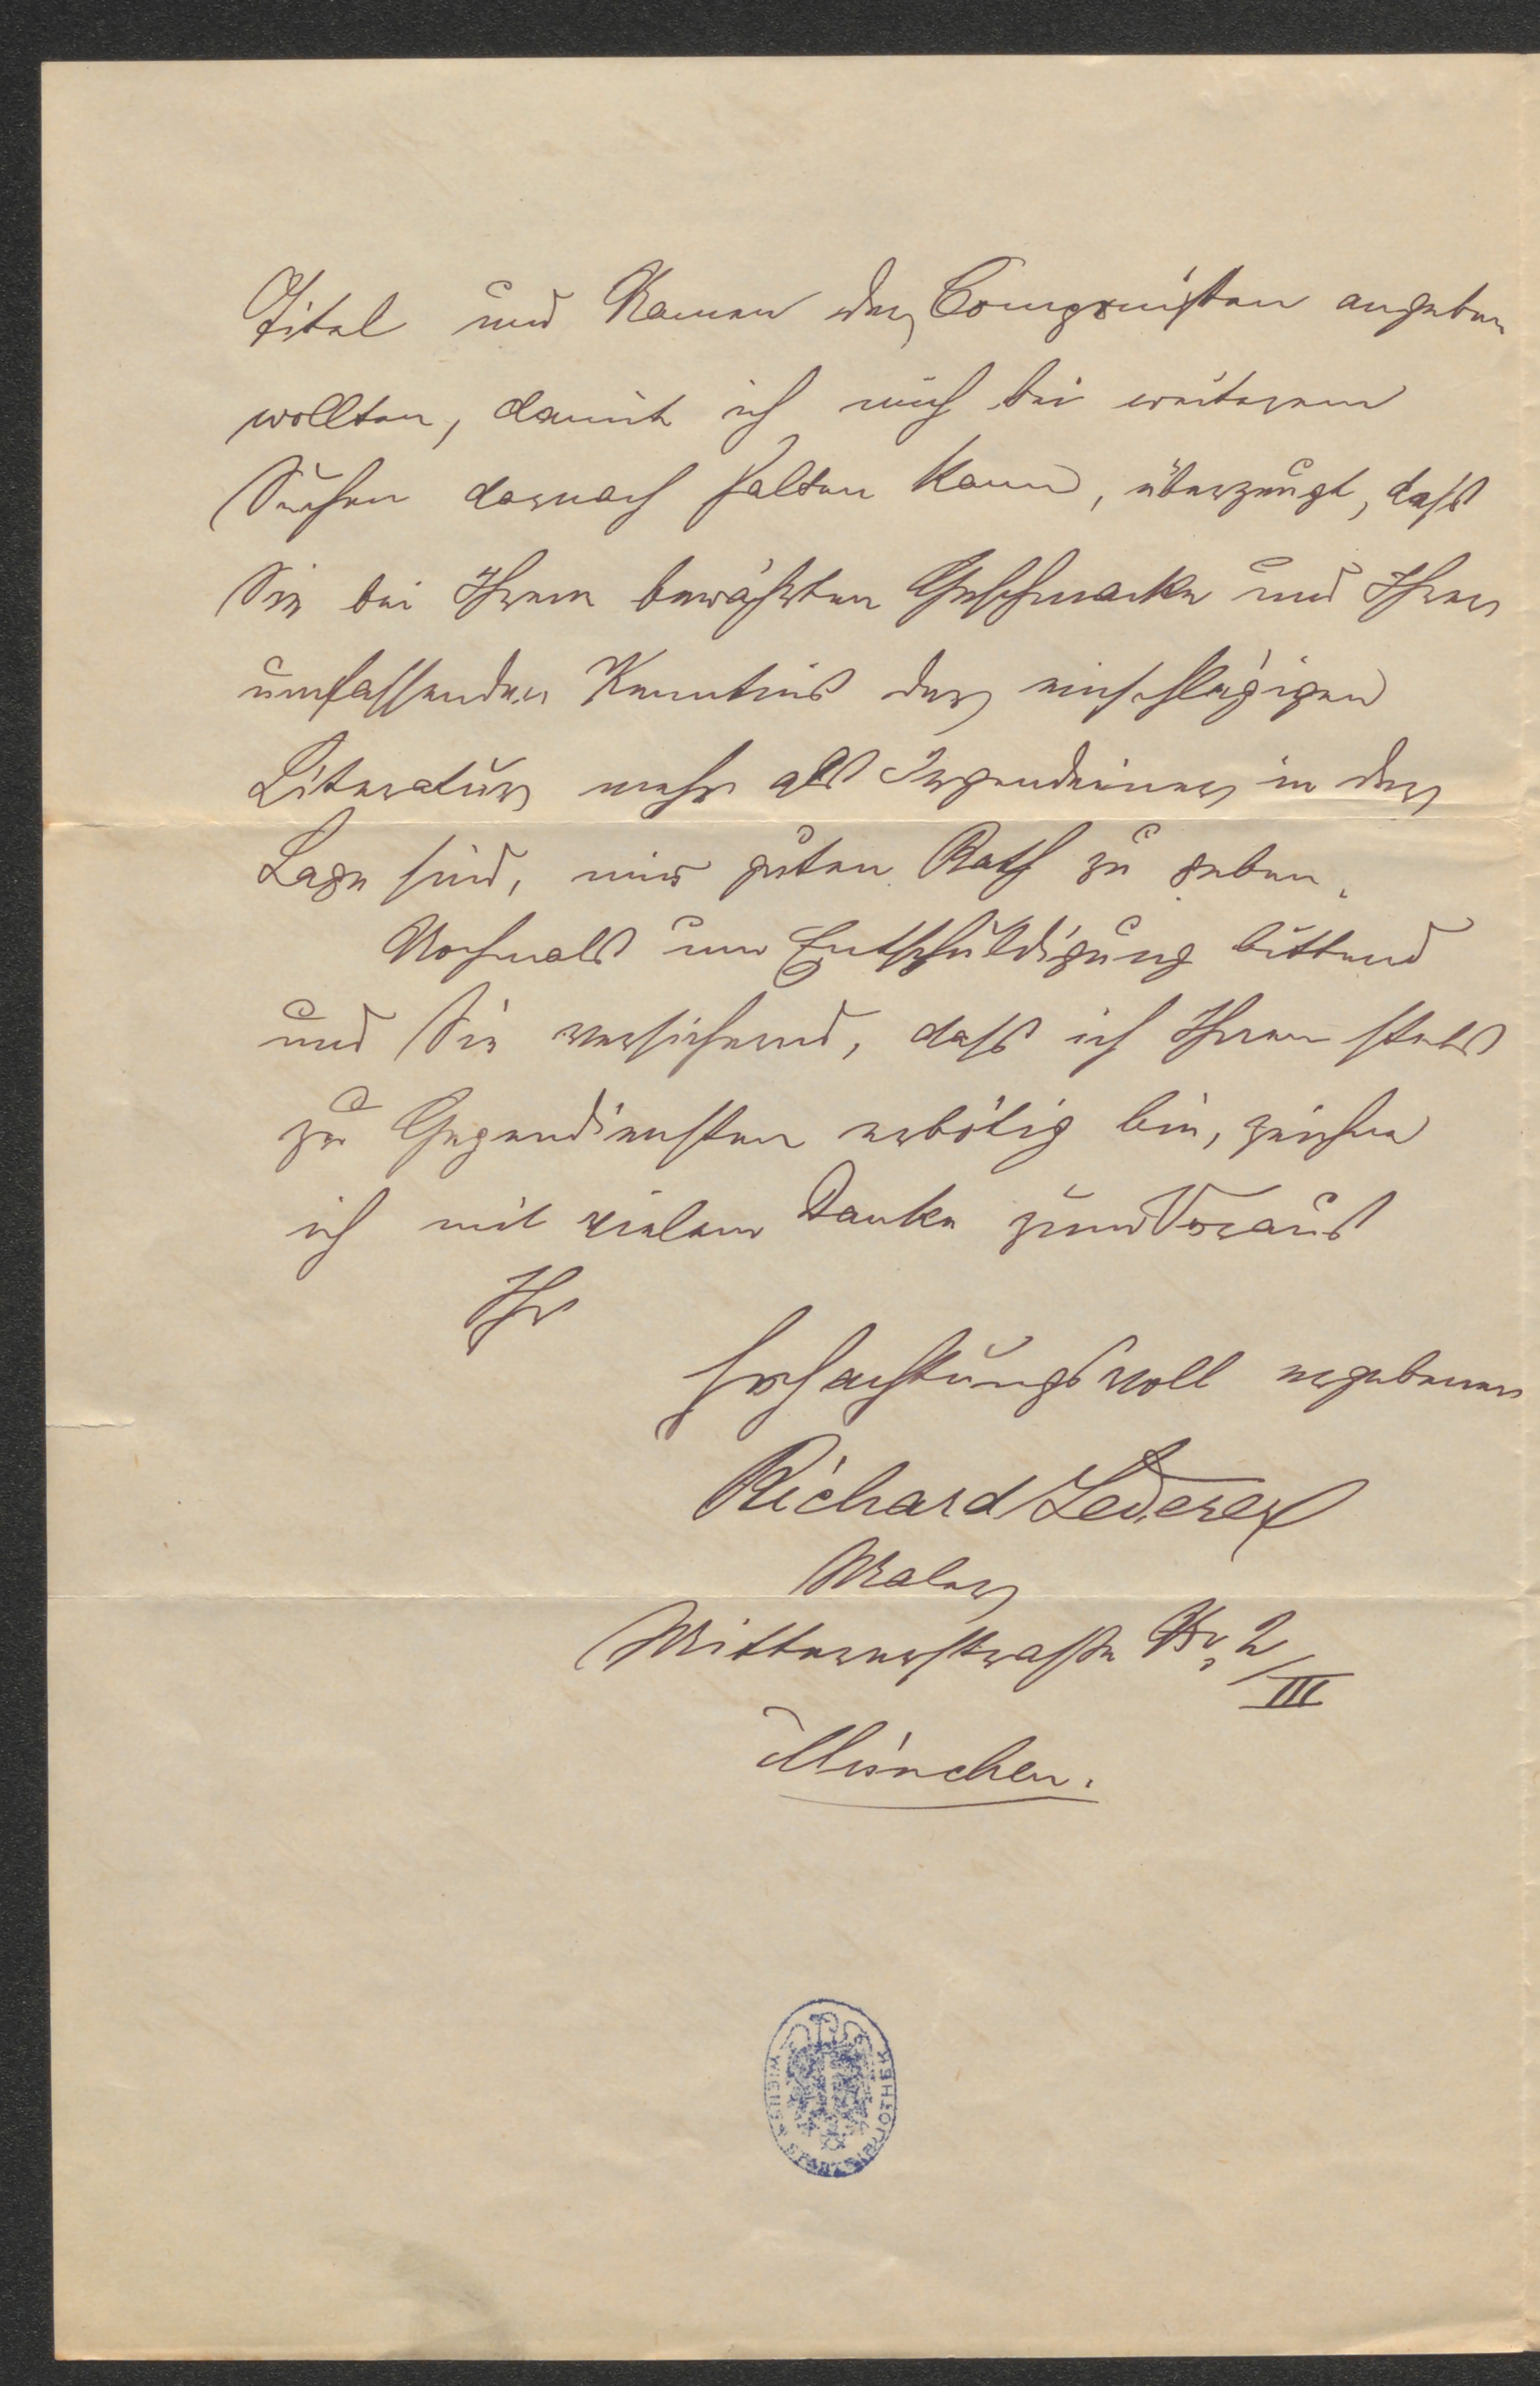 Titel und Namen der Componisten angeben
wollten, damit ich mich bei weiterem
Suchen darnach halten kann, überzeugt, daß
Sie bei Ihrem bewährten Geschmacke und Ihrer
umfassenden Kenntnis der einschlägigen
Literatur mehr als Irgendeiner in der
Lage sind, mir guten Rath zu geben.
Nochmals um Entschuldigung bittend
und Sie versichernd, daß ich Ihnen stets
zu Gegendiensten erbötig bin, zeichne
ich mit vielem Danke zum Voraus
Ihr
hochachtungsvoll ergebener
Richard Lederer
Maler
Mittererstraße Nr. 2/III
München.
WIENER STADTBIBLIOTHEK